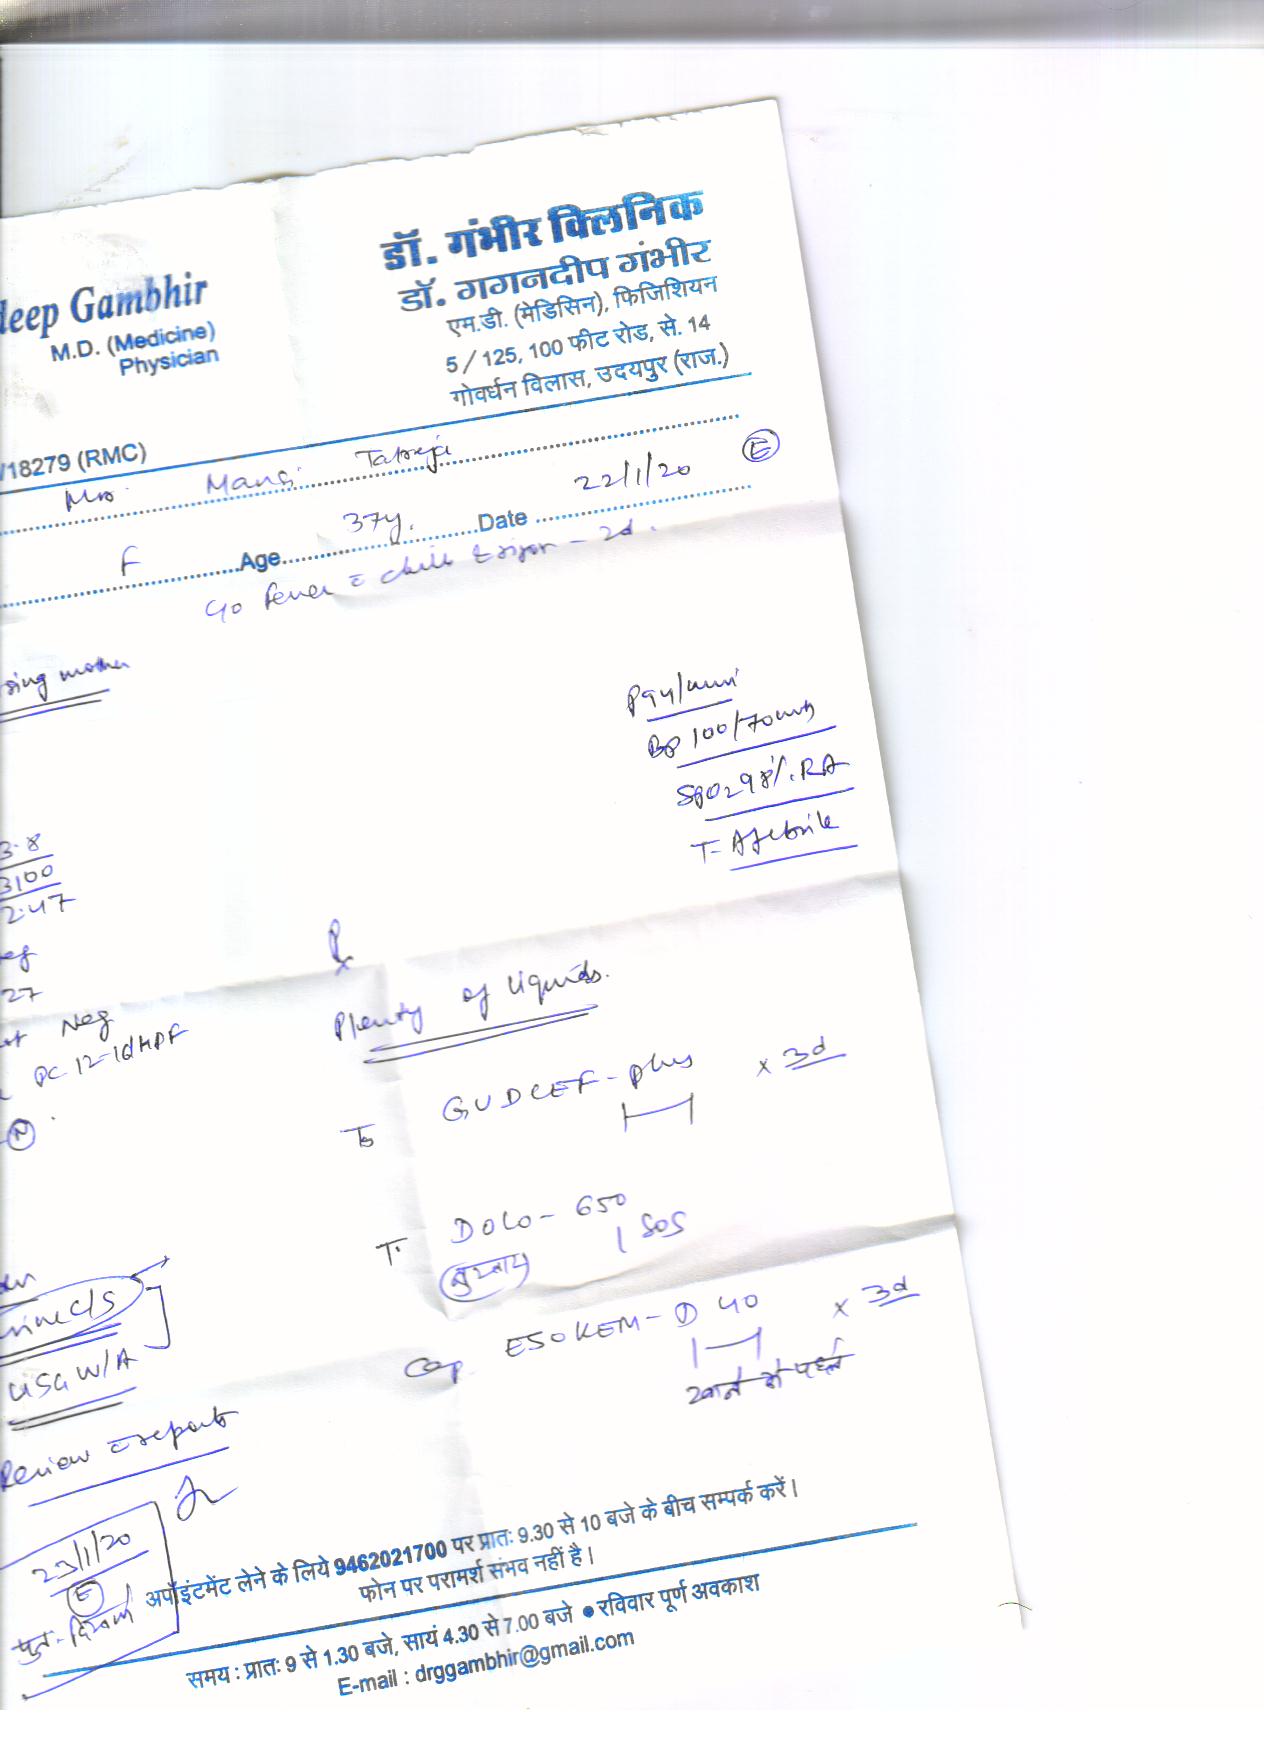 डॉ. गंभीर क्लिनिक
डॉ. गगनदीप गंभीर
एम.डी. (मेडिसिन), फिजिशियन
5/125, 100 फीट रोड, से. 14
गोवर्धन विलास, उदयपुर (राज.)
deep Gambhir
M.D. (Medicine)
Physician
/18279 (RMC)
Mrs. Mansi Tatreja
F Age 37y. Date 22/1/20 E
C/o Fever c chills & rigor - 2d.
sing mother
P 94/min
BP 100/70
SPO2 98% RA
T- Afebrile
3.8
3100
2.47
eg
27
Neg
PC 12-16 HPF
N
Rx
Plenty of liquids.
GUDCEF-plus x 3d
T. DOLO-650
1 SOS
बुखार
Cap ESOKEM-D 40 x 3d
खाने से पहले
rine C/S
USG W/A
Review c reports
23/1/20
E
पुनः दिखाएं
अपॉइंटमेंट लेने के लिये 9462021700 पर प्रातः 9.30 से 10 बजे के बीच सम्पर्क करें।
फोन पर परामर्श संभव नहीं है।
समय : प्रातः 9 से 1.30 बजे, सायं 4.30 से 7.00 बजे ● रविवार पूर्ण अवकाश
E-mail : drggambhir@gmail.com